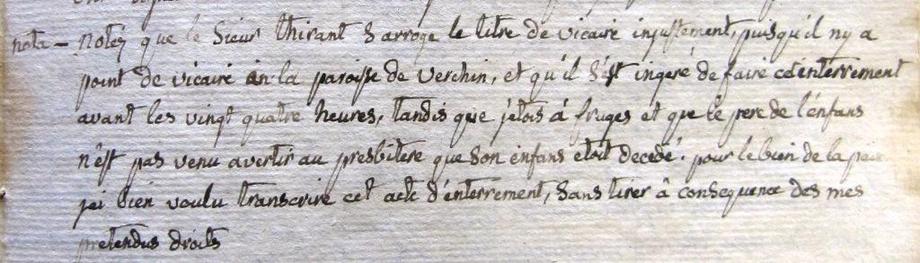 nota — notez que le Sieur thirant S arroge le titre de vicaire injustement, puisqu'il ny a
point de vicaire en la paroisse de verchin, et qu'il S'est ingeré de faire cet interrement
avant les vingt quatre heures, tandis que j'etois á fruges et que le pere de l'enfans
n'est pas venu avertir au presbitere que Son enfans etoit decedé. pour le bien de la paix
jai bien voulu transcrire cet acte d'enterrement, Sans tirer á consequence des mes
pretendus droits